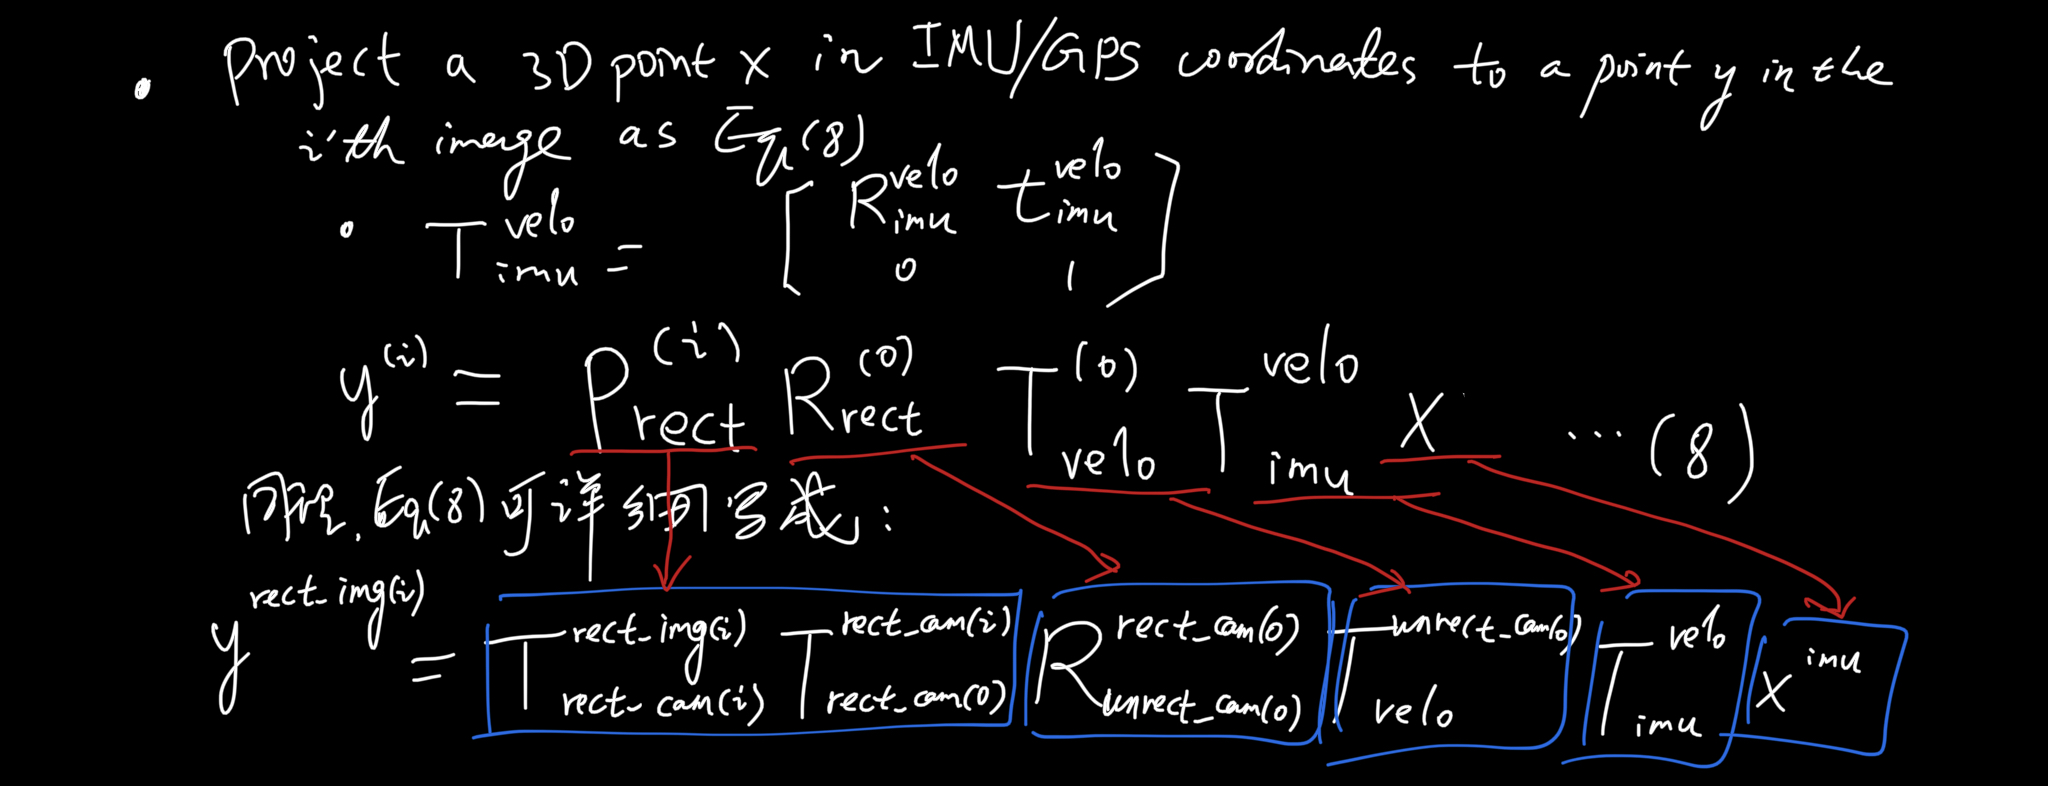 • Project a 3D point x in IMU/GPS coordinates to a point y in the
i'th image as Eq(8)
• T_{imu}^{velo} = [ R_{imu}^{velo} t_{imu}^{velo} ; 0 1 ]
y^{(i)} = P_{rect}^{(i)} R_{rect}^{(0)} T_{velo}^{(0)} T_{imu}^{velo} X ... (8)
同理, Eq(8) 可详细写成:
y^{rect_img(i)} = T_{rect_cam(i)}^{rect_img(i)} T_{rect_cam(0)}^{rect_cam(i)} R_{unrect_cam(0)}^{rect_cam(0)} T_{velo}^{unrect_cam(0)} T_{imu}^{velo} x^{imu}